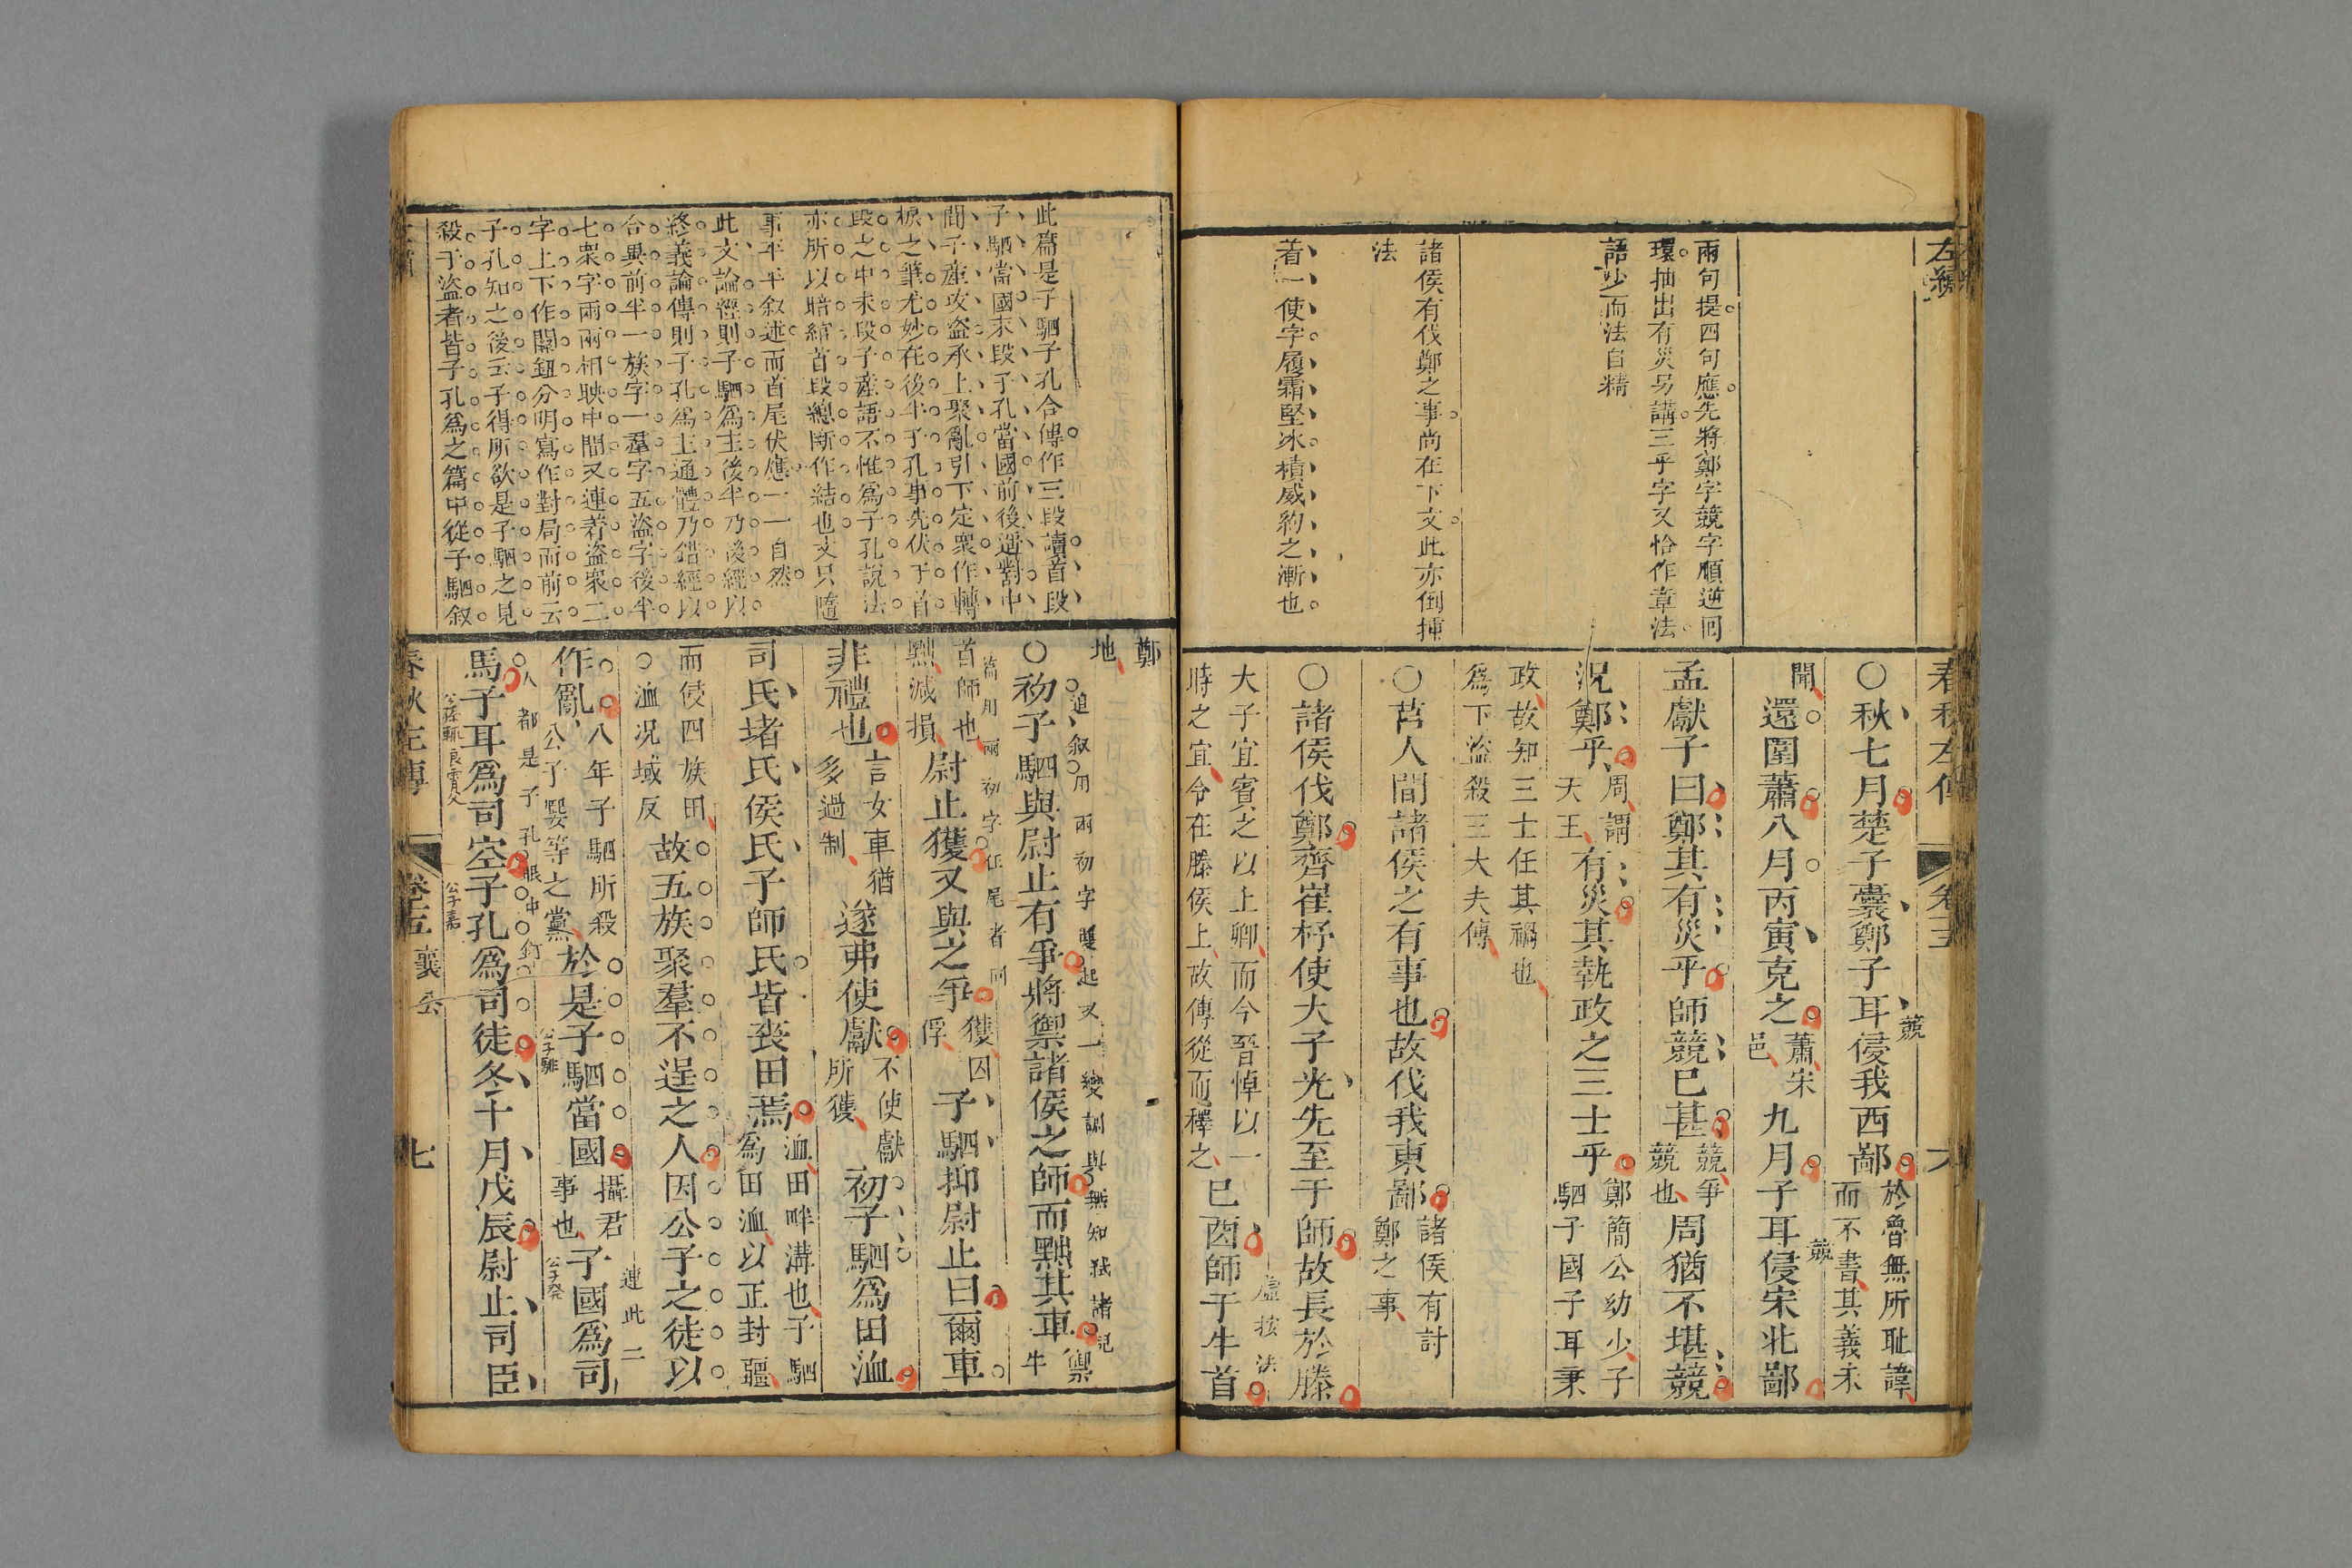 左繡
兩句提四句應先將鄭字競字順逆囘
環抽出有災另講三乎字又恰作章法
語少而法自精
諸侯有伐鄭之事尚在下文此亦倒揷
法
着一使字履霜堅冰積威約之漸也
春秋左傳 卷十五
○秋七月楚子囊鄭子耳侵我西鄙 於魯無所恥諱
而不書其義未
競
開 還圍蕭八月丙寅克之 蕭宋
邑 九月子耳侵宋北鄙
競
孟獻子曰鄭其有災乎師競已甚 競爭
競也 周猶不堪競
況鄭乎 周謂
天王 有災其執政之三士乎 鄭簡公幼少子
駟子國子耳秉
政故知三士任其禍也
爲下盜殺三大夫傳
○莒人間諸侯之有事也故伐我東鄙 諸侯有討
鄭之事
○諸侯伐鄭齊崔杼使大子光先至于師故長於滕
虛按法
大子宜賓之以上卿而今晉悼以一
時之宜令在滕侯上故傳從而釋之 己酉師于牛首
此篇是子駟子孔合傳作三段讀首段
子駟當國末段子孔當國前後遙對中
間子產攻盜承上聚亂引下定衆作轉
棙之筆尤妙在後半子孔事先伏于首
段之中末段子產語不惟爲子孔說法
亦所以暗綰首段總斷作結也文只隨
事平平叙述而首尾伏應一一自然
此文論經則子駟爲主後半乃後經以
終義論傳則子孔爲主通體乃錯經以
合異前半一族字一羣字五盜字後半
七衆字兩兩相映中間又連着盜衆二
字上下作關鈕分明寫作對局而前云
子孔知之後云子得所欲是子駟之見
殺于盜者皆子孔爲之篇中從子駟叙
鄭
地
追叙用兩初字雙起又一變調與無知弒諸兒
○初子駟與尉止有爭將禦諸侯之師而黜其車 禦
牛
篇用兩初字在尾者同
首師也
黜減損 尉止獲又與之爭 獲囚
俘 子駟抑尉止曰爾車
非禮也 言女車猶
多過制 遂弗使獻 不使獻
所獲 初子駟爲田洫
司氏堵氏侯氏子師氏皆喪田焉 洫田畔溝也子駟
爲田洫以正封疆
而侵四族田
○洫况域反 故五族聚羣不逞之人因公子之徒以
作亂 八年子駟所殺
公子嬰等之黨 於是子駟當國 攝君
事也 子國爲司
公子騑
公子發
連此二
人都是子孔眼中釘
馬子耳爲司空子孔爲司徒冬十月戊辰尉止司臣
公孫輒良霄父
公子嘉
春秋左傳 卷十五 襄公 七